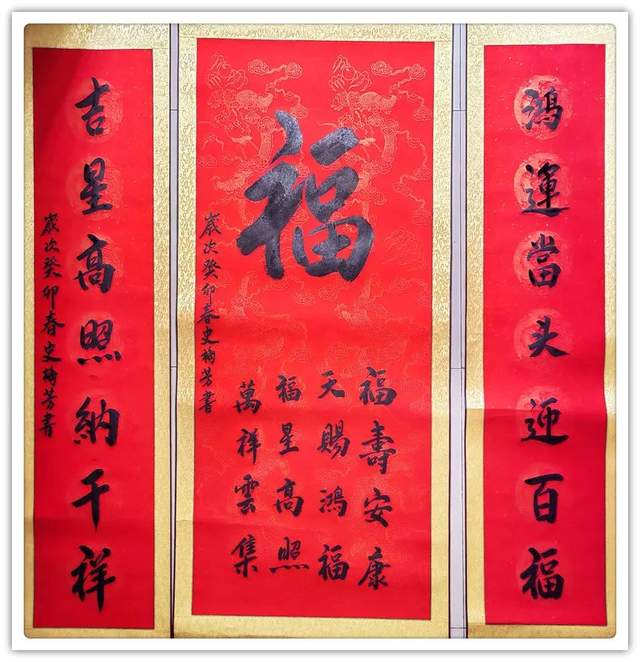 鴻運當头迎百福
福
福壽安康
天賜鴻福
福星高照
萬祥雲集
歲次癸卯春史绚芳書
吉星高照納千祥
歲次癸卯春史绚芳書